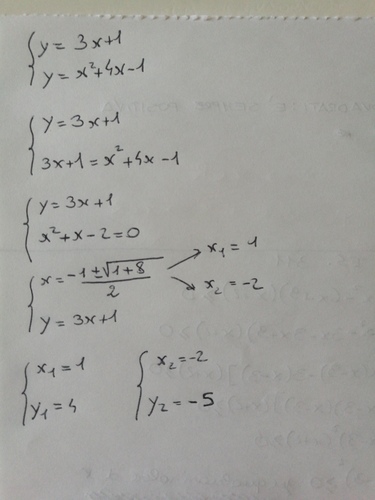 y = 3x+1
y = x²+4x-1
y = 3x+1
3x+1 = x²+4x-1
y = 3x+1
x²+x-2=0
x = -1±√1+8 / 2
x₁ = 1
x₂ = -2
y = 3x+1
x₁ = 1
y₁ = 4
x₂ = -2
y₂ = -5